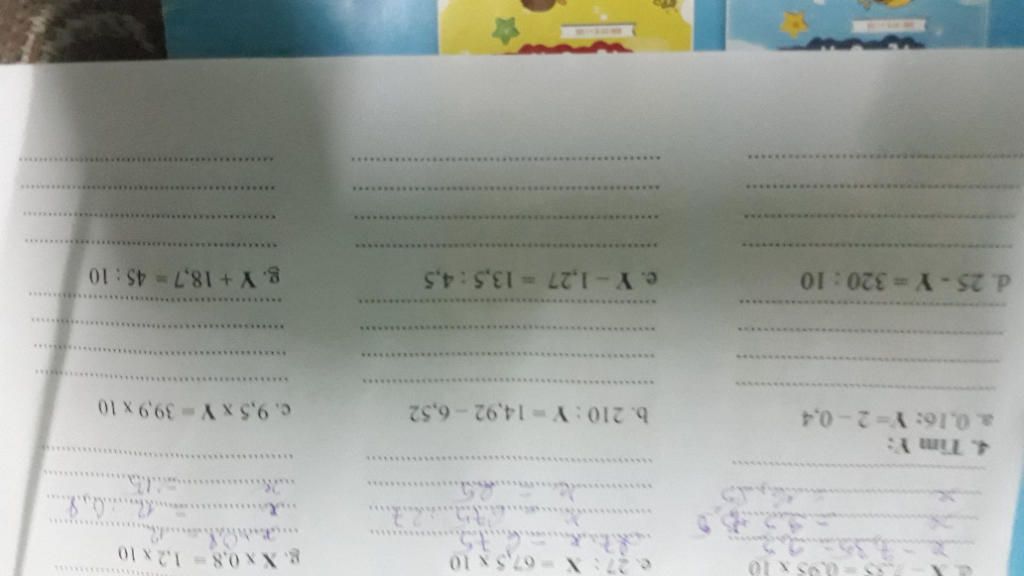 d. X − 7,35 = 0,95 x 10
e. 27 : X = 67,5 x 10
g. X x 0,8 = 1,2 x 10
x x 0,8 = 12
x = 675 : 27
x = 12 : 0,8
x = 25
x = 15
4. Tìm Y:
a. 0,16: Y= 2 − 0,4
b. 210 : Y = 14,92 − 6,52
c. 9,5 x Y = 39,9 x 10
d. 25 - Y = 320 : 10
e. Y − 1,27 = 13,5 : 4,5
g. Y + 18,7 = 45 : 10